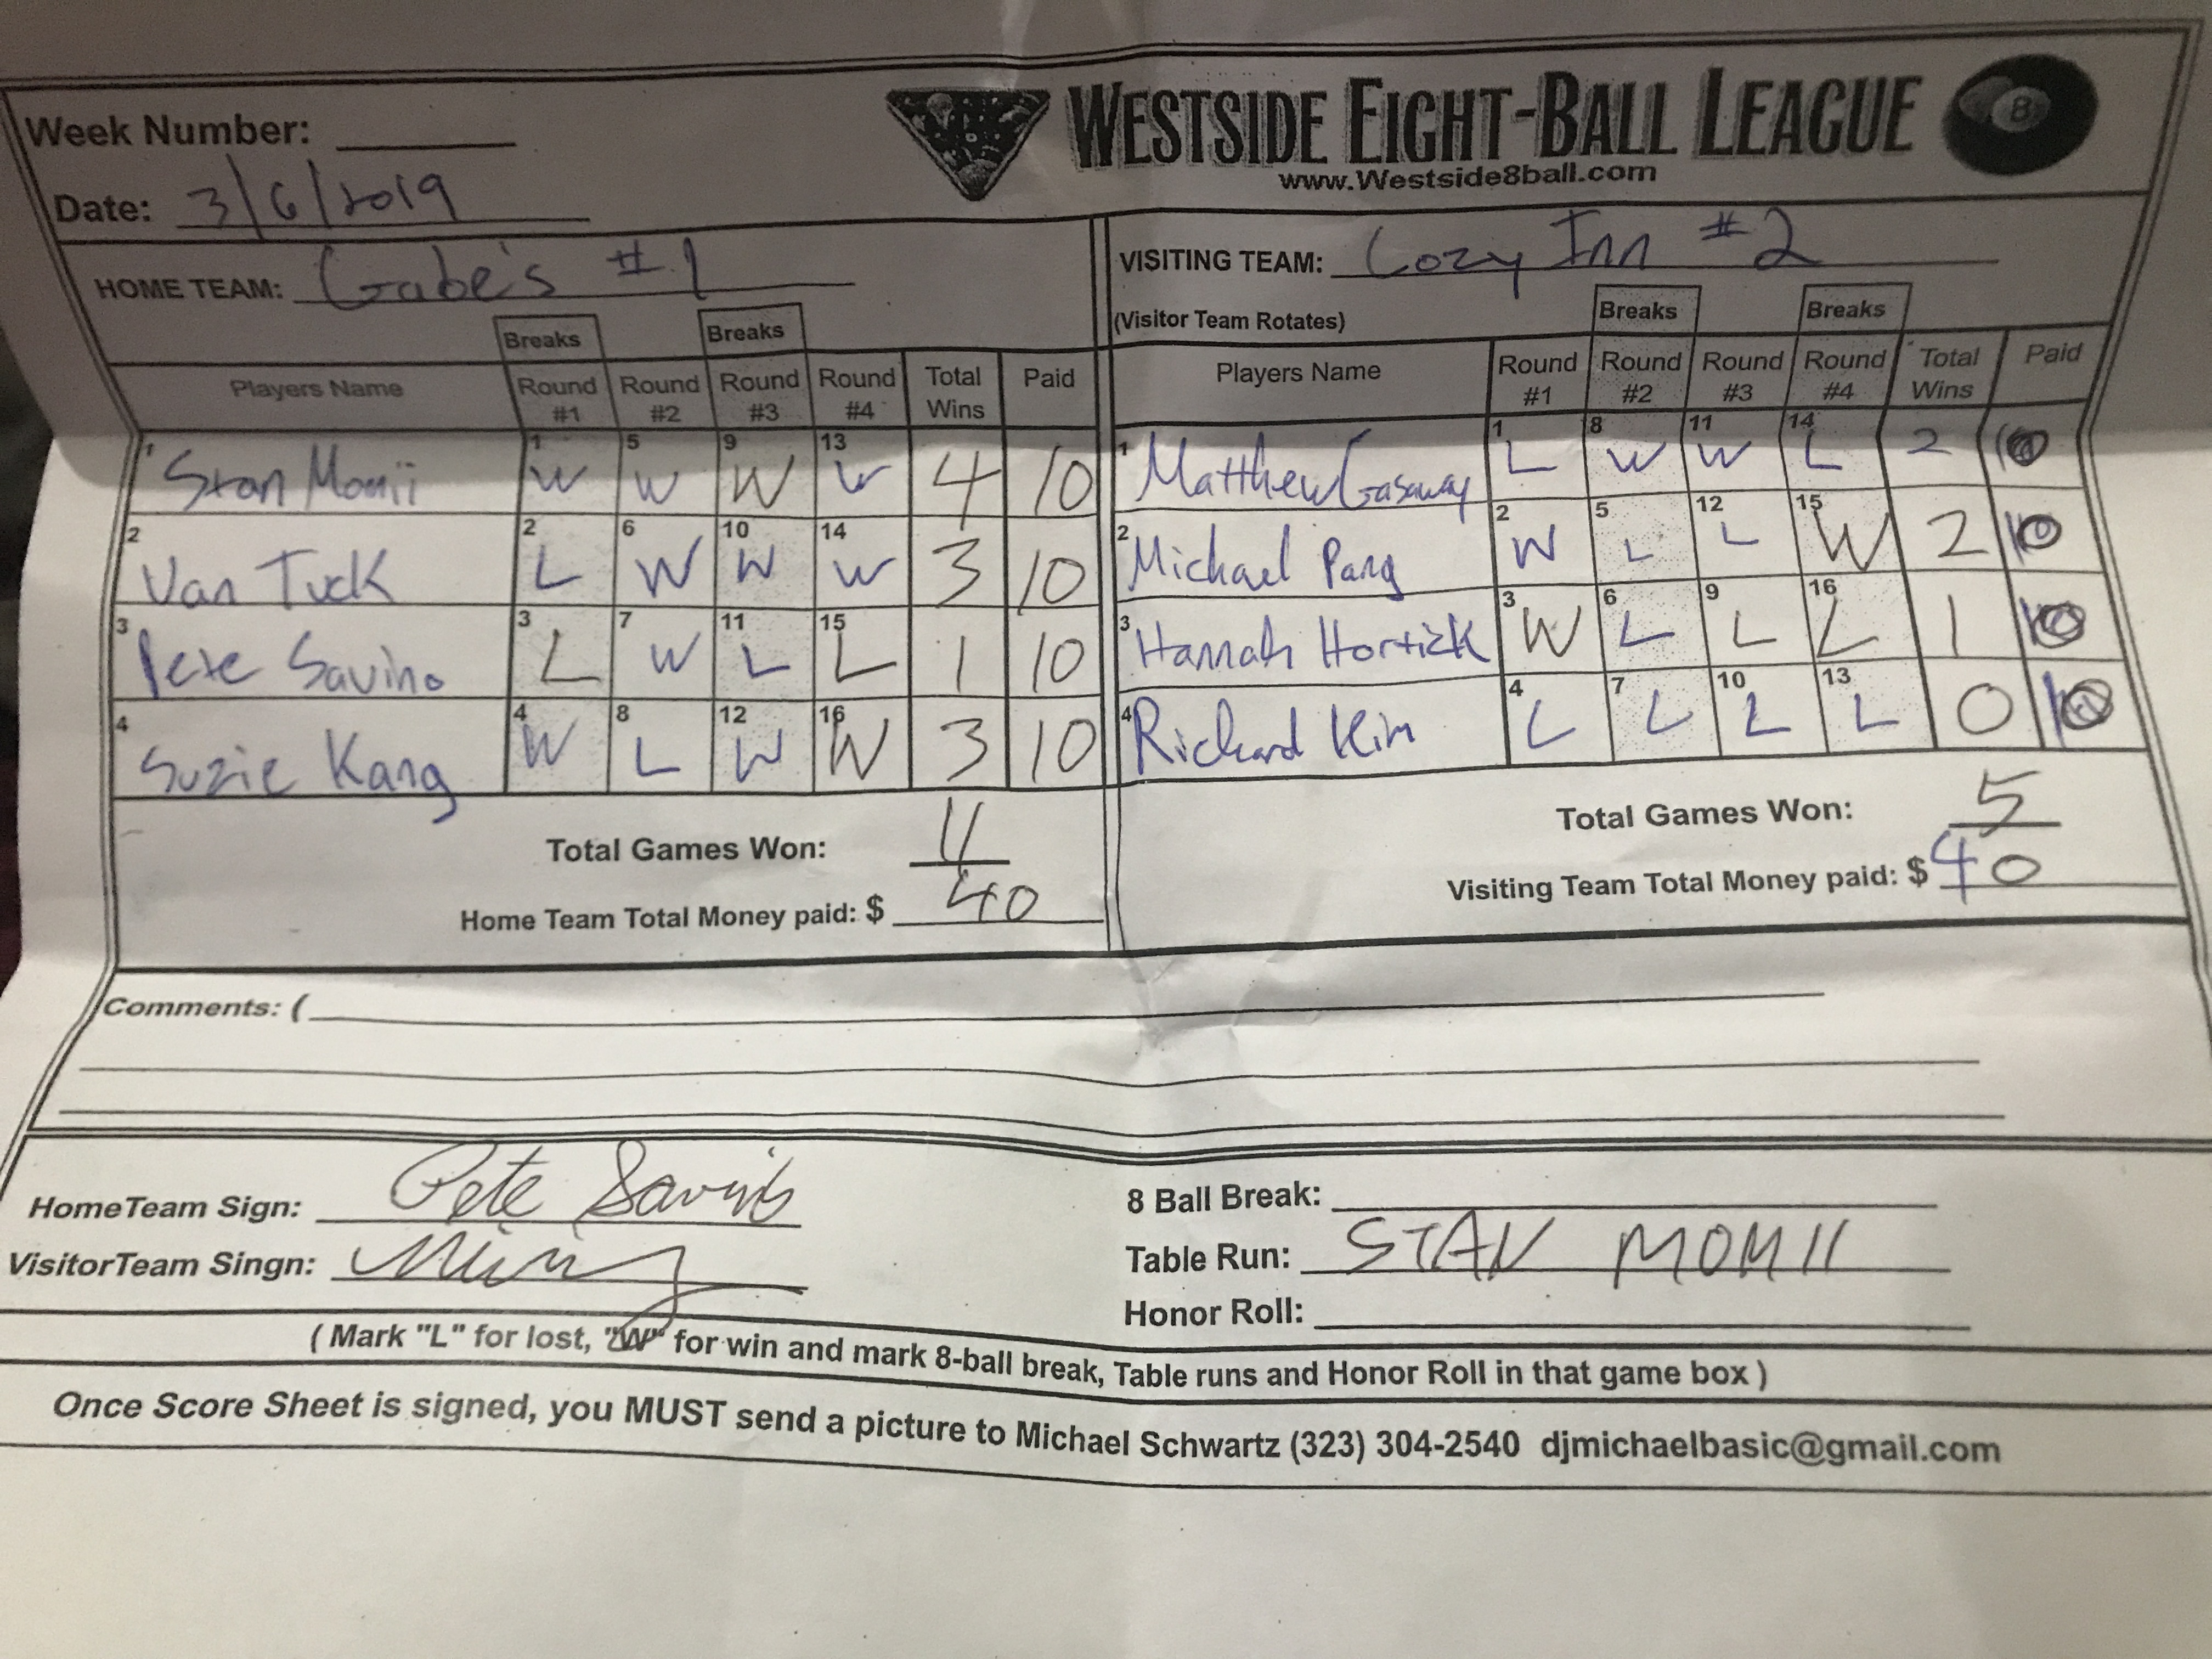 Week Number:
WESTSIDE EIGHT-BALL LEAGUE 8
www.Westside8ball.com
Date: 3/6/2019
HOME TEAM: Gabe's #1
VISITING TEAM: Cozy Inn #2
(Visitor Team Rotates)
Breaks Breaks Breaks Breaks
Players Name Round #1 Round #2 Round #3 Round #4 Total Wins Paid
Players Name Round #1 Round #2 Round #3 Round #4 Total Wins Paid
1 Stan Momii 1 W 5 W 9 W 13 W 4 10
1 Matthew Gasaway 1 L 8 W 11 W 14 L 2 10
2 Van Tuck 2 L 6 W 10 W 14 W 3 10
2 Michael Pang 2 W 5 L 12 L 15 W 2 10
3 Pete Savino 3 L 7 W 11 L 15 L 1 10
3 Hannah Hortick 3 W 6 L 9 L 16 L 1 10
4 Suzie Kang 4 W 8 L 12 W 16 W 3 10
4 Richard Kim 4 L 7 L 10 L 13 L 0 10
Total Games Won: 11
Total Games Won: 5
Home Team Total Money paid: $ 40
Visiting Team Total Money paid: $ 40
Comments: (
HomeTeam Sign: Pete Savino
8 Ball Break:
VisitorTeam Singn:
Table Run: STAN MOMII
Honor Roll:
( Mark "L" for lost, "W" for win and mark 8-ball break, Table runs and Honor Roll in that game box )
Once Score Sheet is signed, you MUST send a picture to Michael Schwartz (323) 304-2540 djmichaelbasic@gmail.com